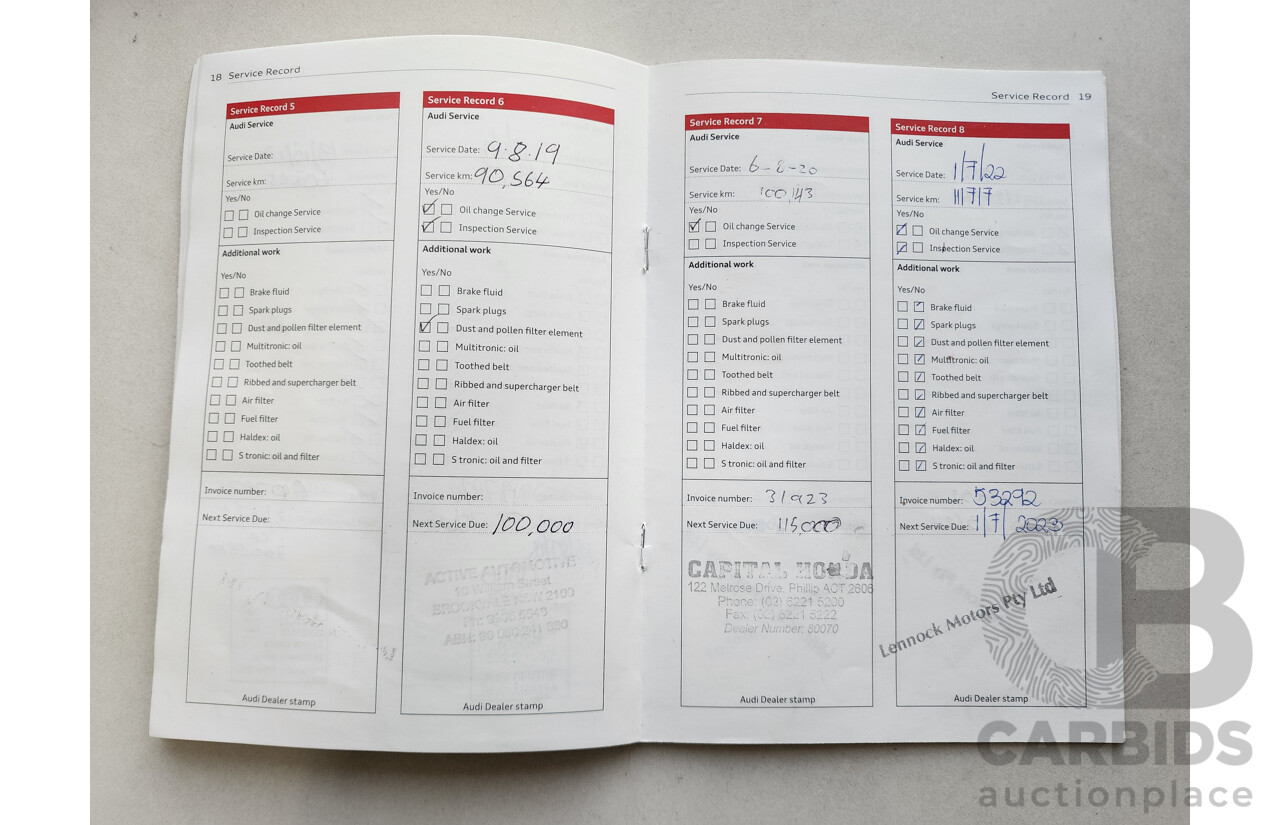 18 Service Record
Service Record 5
Audi Service
Service Date:
Service km:
Yes/No
Oil change Service
Inspection Service
Additional work
Yes/No
Brake fluid
Spark plugs
Dust and pollen filter element
Multitronic: oil
Toothed belt
Ribbed and supercharger belt
Air filter
Fuel filter
Haldex: oil
S tronic: oil and filter
Invoice number:
Next Service Due:
Audi Dealer stamp
Service Record 6
Audi Service
Service Date: 9.8.19
Service km: 90,564
Yes/No
Oil change Service
Inspection Service
Additional work
Yes/No
Brake fluid
Spark plugs
Dust and pollen filter element
Multitronic: oil
Toothed belt
Ribbed and supercharger belt
Air filter
Fuel filter
Haldex: oil
S tronic: oil and filter
Invoice number:
Next Service Due: 100,000
ACTIVE AUTOMOTIVE
Street
BROOKVALE NSW 2100
Audi Dealer stamp
Service Record 19
Service Record 7
Audi Service
Service Date: 6-8-20
Service km: 100,143
Yes/No
Oil change Service
Inspection Service
Additional work
Yes/No
Brake fluid
Spark plugs
Dust and pollen filter element
Multitronic: oil
Toothed belt
Ribbed and supercharger belt
Air filter
Fuel filter
Haldex: oil
S tronic: oil and filter
Invoice number: 31923
Next Service Due: 115,000
CAPITAL HONDA
122 Melrose Drive, Phillip ACT 2606
Phone: (02) 6221 5200
Fax: (02) 6221 5222
Dealer Number: 80070
Audi Dealer stamp
Service Record 8
Audi Service
Service Date: 1/7/22
Service km: 111717
Yes/No
Oil change Service
Inspection Service
Additional work
Yes/No
Brake fluid
Spark plugs
Dust and pollen filter element
Multitronic: oil
Toothed belt
Ribbed and supercharger belt
Air filter
Fuel filter
Haldex: oil
S tronic: oil and filter
Invoice number: 53292
Next Service Due: 1/7/2023
Lennock Motors Pty Ltd
Audi Dealer stamp
CB
CARBIDS
auctionplace